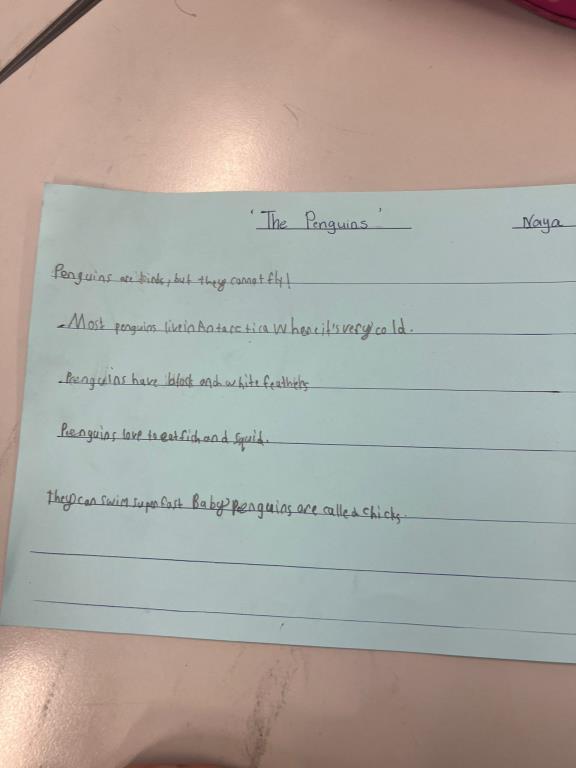 'The Penguins'
Naya
Penguins are birds, but they cannot fly!
Most penguins live in Antarctica where it's very cold.
Penguins have black and white feathers
Penguins love to eat fish and squid.
they can swim super fast Baby penguins are called chicks.